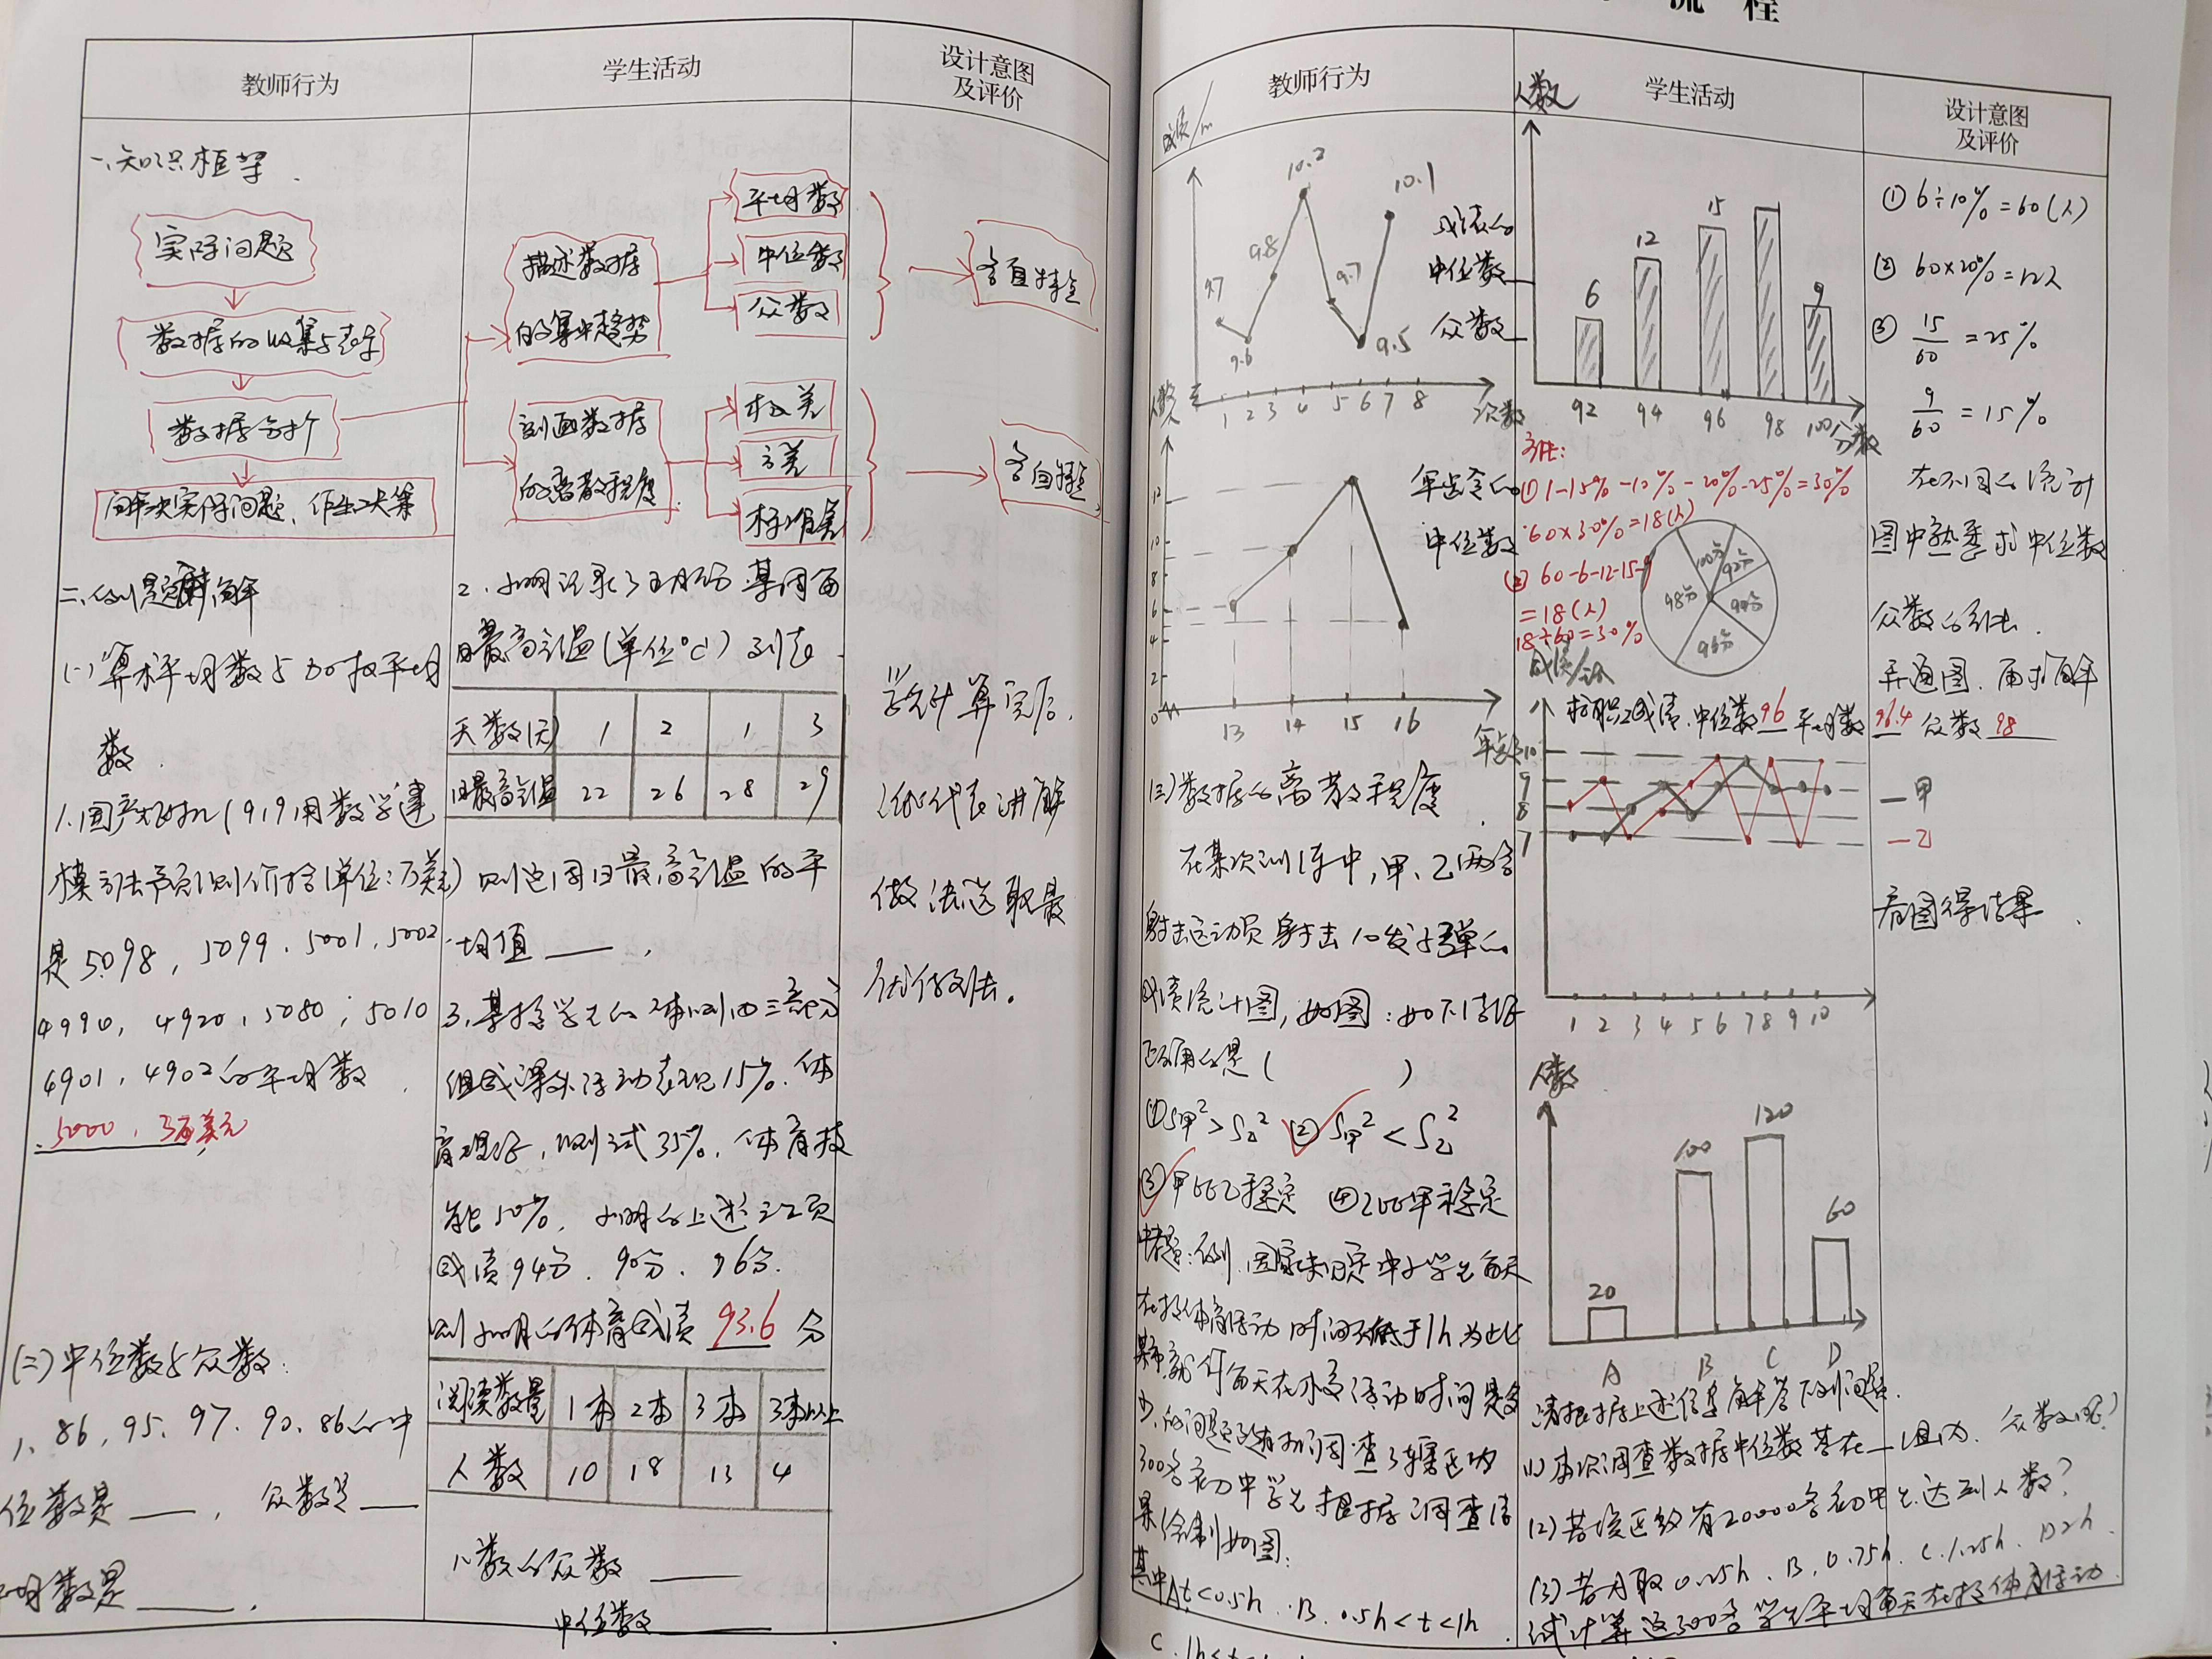 流 程
教师行为
学生活动
设计意图
及评价
一、知识框架
实际问题
数据的收集与表示
数据分析
解决实际问题、作出决策
描述数据
的集中趋势
平均数
中位数
众数
各自特点
刻画数据
的离散程度
极差
方差
标准差
各自特点
二、例题讲解
(一)算术平均数与加权平均
数
1.国产大飞机C919用数学建
模方法预测价格(单位:万美元)
是5098,5099,5001,5002
4990,4920,5080,5010
4901,4902的平均数
5000.3万美元
(二)中位数与众数:
1、86,95、97、90、86的中
位数是____,众数是____
平均数是____.
2.小明记录了五月份某周每
日最高气温(单位℃)列表
天数(天) 1 2 1 3
日最高气温 22 26 28 29
则这周日最高气温的平
均值____.
3.某校学生的体测由三部分
组成课外活动表现15%.体
育理论,测试35%.体育技
能50%,小明的上述三项
成绩94分、90分、96分.
则小明的体育成绩 93.6 分
阅读数量 1本 2本 3本 3本以上
人数 10 18 13 4
人数的众数____
中位数____
学生计算完后,
代表讲解
做法选取最
优做法。
教师行为
学生活动
设计意图
及评价
成绩/m
9.7 9.6 9.8 10.2 9.7 9.5 10.1
1 2 3 4 5 6 7 8 次数
成绩的
中位数____
众数____
人数
12 10 8 6 4 2 0
13 14 15 16 年龄
年龄的
中位数
(三)数据的离散程度
在某次训练中,甲、乙两名
射击运动员射击10发子弹的
成绩统计图,如图:如下结论
正确的是( )
①S甲²>S乙² ②S甲²<S乙²
③甲比乙稳定 ④乙比甲稳定
中考题:例.国家规定中小学生每天
在校体育活动时间不低于1h.为此
某市就你每天在校体育活动时间是多
少的问题随机调查了辖区内
300名初中学生根据调查结
果绘制如图:
其中A.t<0.5h B.0.5h<t<1h
人数
6 12 15 9
92 94 96 98 100 分数
方法:
①1-15%-10%-20%-25%=30%
60×30%=18(人)
② 60-6-12-15-9
=18(人)
18÷60=30%
100分 92分 94分 96分 98分
成绩/分
校职工成绩.中位数 96 平均数 96.4 众数 98
10 9 8 7
1 2 3 4 5 6 7 8 9 10
—甲
—乙
人数
20 100 120 60
A B C D
请根据上述信息解答下列问题.
(1)本次调查数据中位数落在__组内.众数呢?
(2)若该区约有20000名初中生达到人数?
(3)若A取0.25h、B.0.75h.C.1.25h.D2h.
试计算这300名学生平均每天在校体育活动
① 6÷10%=60(人)
② 60×20%=12人
③ 15/60=25%
9/60=15%
在不同的统计
图中熟悉求中位数
众数的方法.
弄通图.再求解
看图得结果.